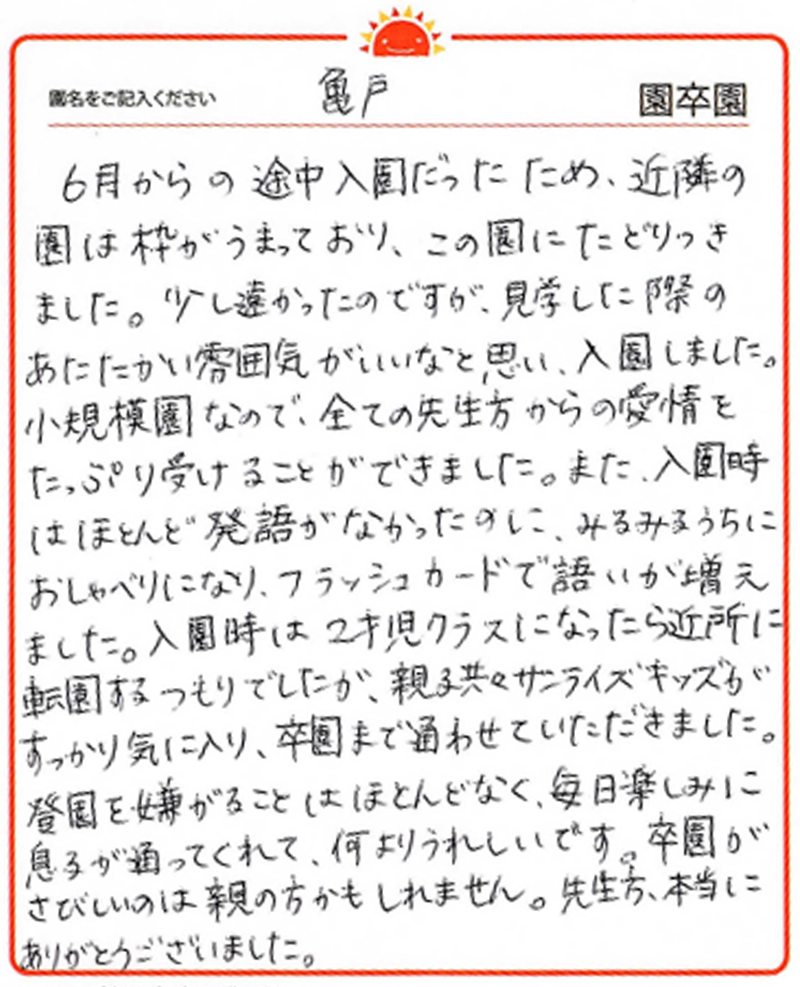 園名をご記入ください 亀戸 園卒園
6月からの途中入園だったため、近隣の
園は枠がうまっており、この園にたどりつき
ました。少し遠かったのですが、見学した際の
あたたかい雰囲気がいいなと思い、入園しました。
小規模園なので、全ての先生方からの愛情を
たっぷり受けることができました。また、入園時
はほとんど発語がなかったのに、みるみるうちに
おしゃべりになり、フラッシュカードで語いが増え
ました。入園時は2才児クラスになったら近所に
転園するつもりでしたが、親子共々サンライズキッズが
すっかり気に入り、卒園まで通わせていただきました。
登園を嫌がることはほとんどなく、毎日楽しみに
息子が通ってくれて、何よりうれしいです。卒園が
さびしいのは親の方かもしれません。先生方、本当に
ありがとうございました。